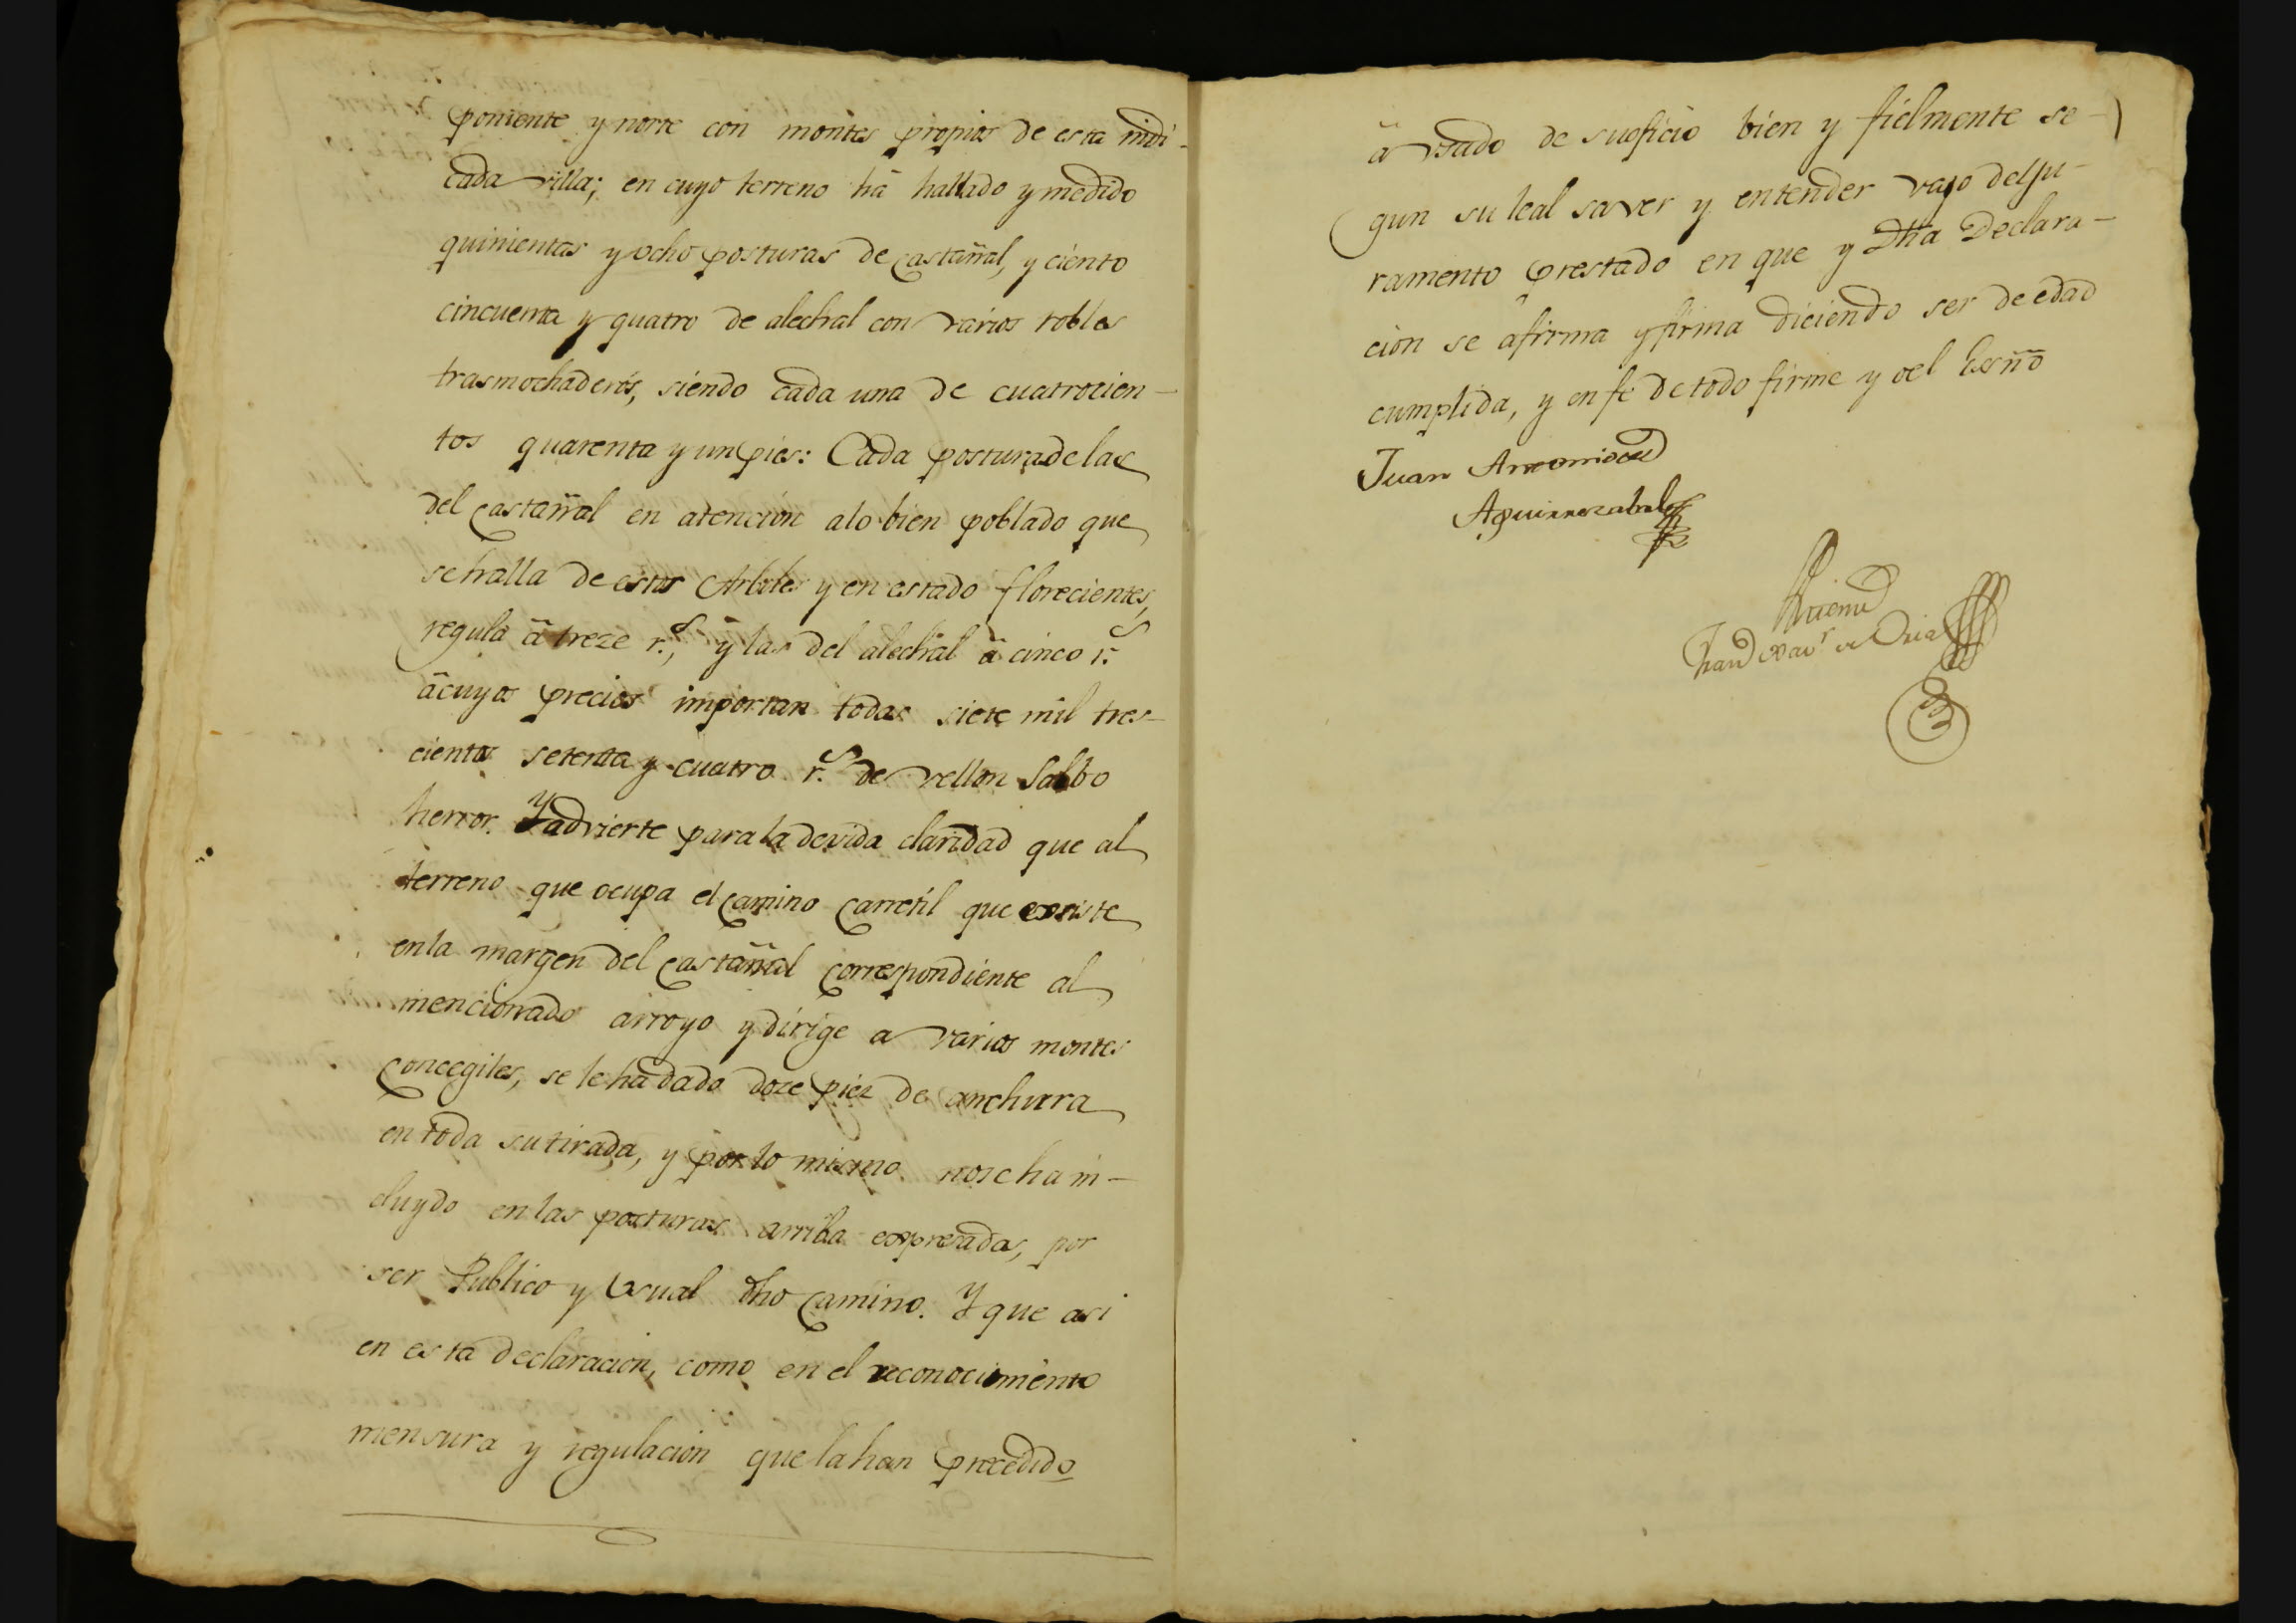 poniente y norte con montes propios de esta indi-
cada villa; en cuyo terreno há hallado y medido
quinientas y ocho posturas de castañal, y ciento
cincuenta y quatro de alechal con varios robles
trasmochaderos, siendo cada una de cuatrocien-
tos quarenta y un pies: Cada postura de las
del castañal en atencion a lo bien poblado que
se halla de estos Arboles y en estado florecientes,
regula â treze r.s, y las del alechal â cinco r.s
â cuyos precios importan todas siete mil tres-
cientos setenta y cuatro r.s de vellon salbo
herror. Y advierte para la devida claridad que al
terreno que ocupa el camino carretil que existe
en la margen del castañal correspondiente al
mencionado arroyo y dirige a varios montes
concegiles, se le ha dado doze piez de anchura
en toda su tirada, y por lo mismo no se ha in-
cluydo en las posturas arriba expresadas, por
ser Publico y Usual dho camino. Y que asi
en esta declaracion, como en el reconocimiento
mensura y regulacion que la han precedido
â usado de su oficio bien y fielmente se-
gun su leal saver y entender vajo del ju-
ramento prestado en que y dha Declara-
cion se afirma y firma diciendo ser de edad
cumplida, y en fe de todo firme yo el Essño
Juan Antonio de
Aguirrezabal
Antemi
Fran.co Xav.r de Oria